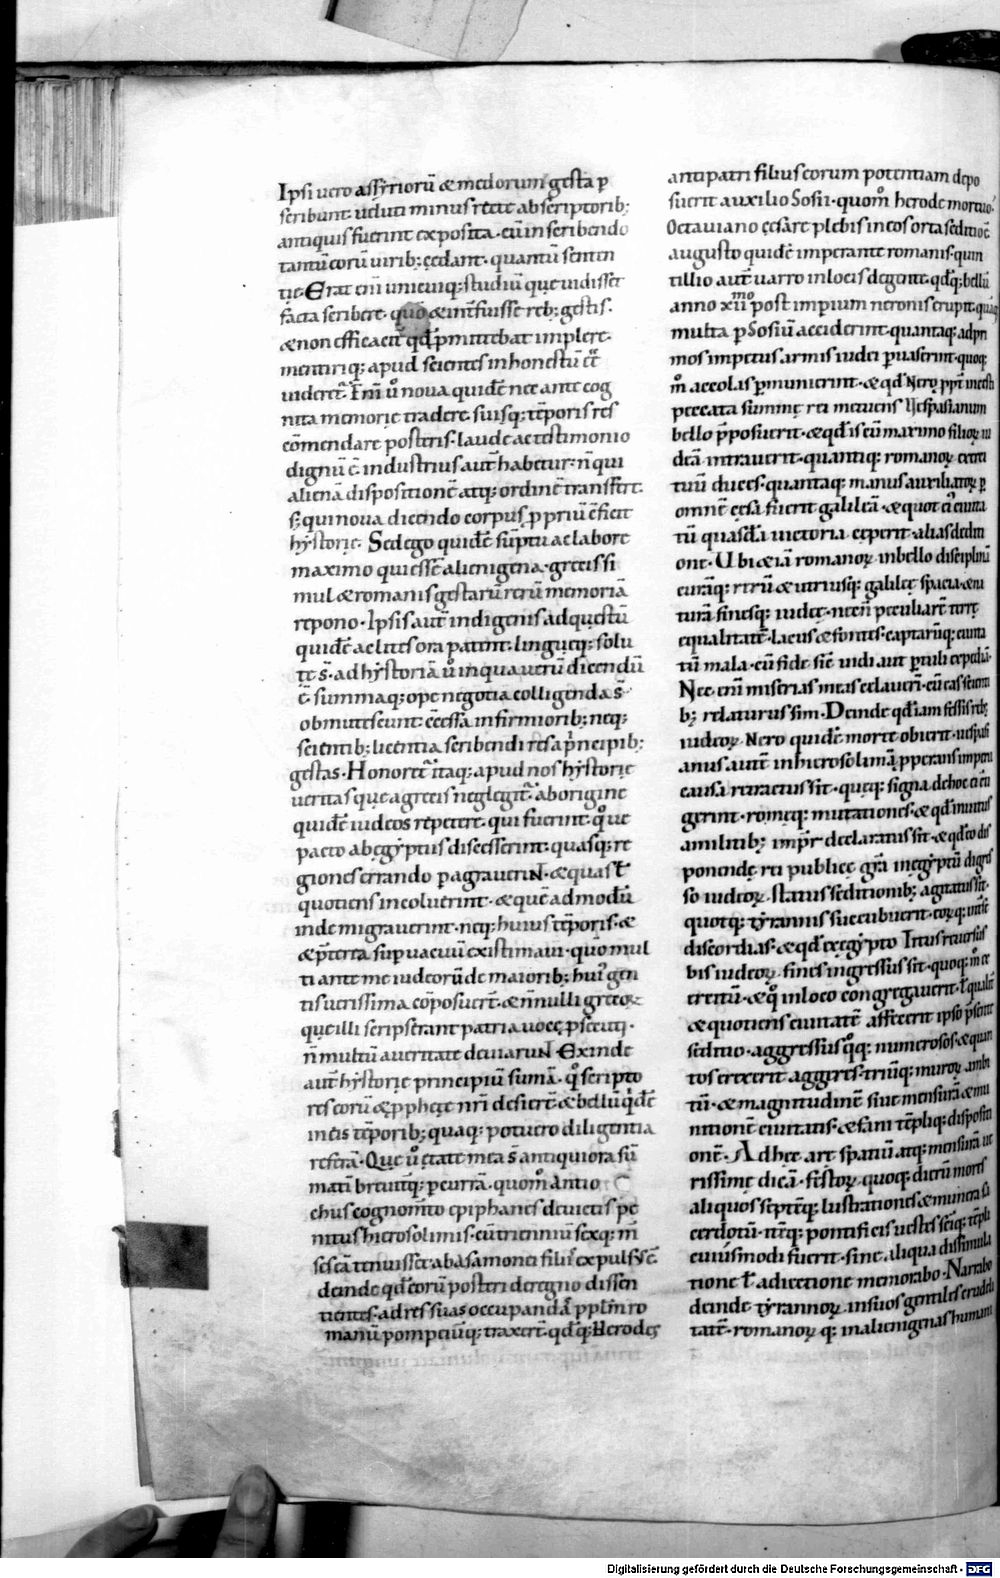 Ipsi uero assyrioru᷒ & medorum gesta p
scribunt ueluti minus recte ab scriptorib;
antiquis fuerint exposita. cū in scribendo
tantū eorū uirib; cędant. quantū senten
tię. Erat eni᷒ unicuiq; studiū que uidisset
facta scribere. quō & int̄fuisse reb; gestis.
& non efficacit̄ qd̄ p̄mittebat implere.
mentiriq; apud scientes inhonestū
uideret᷒. noua quidē nec ante cog
nita memorię tradere. suisq; tēporis res
cōmendare posteris. laude ac testimonio
dignū ē. industrius aut̄ habetur. n̄ qui
alienā dispositionē atq; ordinē transfert.
s; qui noua dicendo corpus ppriū efficit
hystorię. Sed ego quidē sūptu ac labore
maximo qui essē alienigena. grecis si
mul & romanis gestarū rerū memoriā
repono. Ipsis aut̄ indigenis ad questū
quidē ac lites ora patent. linguęq; solu
tę s̄. ad hystoriā ů in qua uerū dicendū
ē. summaq; ope negotia colligenda s̄
obmutescunt cēssa infirmiorib; neq;
scientib; licentia scribendi res a p̄ncipib;
gestas. Honoret᷒ itaq; apud nos hystorię
ueritas que a grecis neglegit᷒. ab origine
quidē iudeos repetere. qui fuerint. q̊ue
pacto ab egyptiis discesserint. quasq; re
giones errando pagrauerint. & quas t̄
quotiens incoluerint. & quē ad modū
inde migrauerint. neq; huius tēporis. &
& p̄terea sup uacuū existimaui. quō mul
ti ante me iudeorū de maiorib; hui᷒ gen
tis uerissima cōposuert̄. & n̄nulli grecoꝝ
que illi scripserant patria uoce psecuti.
n̄ multū a ueritate deuiarunt. Exinde
aut̄ hystorię principiū sumā. q̊ scripto
res eorū & pphetę nr̄i desierē. & bellū q̇dē
meis tēporib; quaq; potuero diligentia
referā. Que ů ętate mea s̄ antiquiora sū
matī breuit̄q; pcurrā. quōm antio
chus cognom̄to epiphanes deuictis pe
nitus hierosolimis. cū trienniū sexq; m̄
ses eā tenuisset. ab asamonei filiis expulsus ē.
deinde qd̄ eorū posteri de regno dissen
tientes. ad res suas occupandā pplm̄ ro
manū pompeiūq; traxert̄. qd̄q; Herodes
antipatri filius eorum potentiam depo
suerit auxilio Sosii. quōm herode mortuo.
Octauiano cęsare plebis in eos orta seditio ē
augusto quidē imperante romanis. quin
tillio aut̄ uarro in locis degente. qd̄q; bellū
anno xiimo post impium neronis erupit. quaq;
multa p Sosiū acciderint. quantaq; ad pri
mos impetus armis iudei puaserint. quoq;
m̊ accolas pmunierint. & qd̄ Nero ppt̄
peccata summę rei metuens Uespasianum
bello p̄posuerit. & qd̄ is cū maximo filioꝝ iu
deā intrauerit. quantiq; romanoꝝ exerci
tuū duces. quantaq; manus auxiliatoꝝ p
omnē cęsa fuerit galileā. & quot ei᷒ ciuita
tū quasdā uictoria cęperit. alias deditī
one. Ubi & iā romanoꝝ in bello disciplinā
curāq; rerū & utriusq; galileę spacia & na
turā finesq; iudeę. necn̄ peculiarē terrę
equalitatē. lacus & fontes. captarūq; ciuita
tū mala. cū fide sic̄ uidi aut ptuli expediā.
Nec eni᷒ miserias meas celauerī. cū eas scienti
b; relaturus sim. Deinde qd̄ iam fessis reb;
iudeoꝝ. Nero quidē morte obierit. uespasi
anus aut̄ in hierosolimā pperans imperii
causa retractus sit. queq; signa de hoc ei᷒ eue
gerint. romęq; mutationes. & qd̄ inuitus
a militib; impr̄ declaratus sit. & qd̄ eo dis
ponendę rei publicę gr̄a in egyptū digres
so iudeoꝝ status seditionib; agitatus sit.
quotq; tyrannis succubuerit. eoꝝq; int̄ se
discordias. & qd̄ ex ęgypto Titus reuersus
bis iudeoꝝ fines ingressus sit. quoq; m̊ ex
ercitū. & q̊ in loco congregauerit. t̄ qualit̄
& quotiens ciuitatē affecerit ipso p̄sente
seditio. aggressusq̊q; numerosos. & quan
tos erexerit aggeres. triūq; muroꝝ ambi
tū. & magnitudinē siue mensurā & mu
nitionē ciuitatis. & fani tēpliq; dispositi
onē. Ad hęc arę spatiū atq; mensurā ue
rissimę dicā. festoꝝ quoq; dierū mores
aliquos septēq; lustrationes & munera sa
cerdotū. itēq; pontificis uestes sc̄eq; tēpli
cuiusmodi fuerit. sine aliqua dissimula
tione t̄ adiectione memorabo. Narrabo
deinde tyrannoꝝ in suos gentiles crudeli
tatē. romanoꝝ q; in alienigenas humani
Digitalisierung gefördert durch die Deutsche Forschungsgemeinschaft - DFG